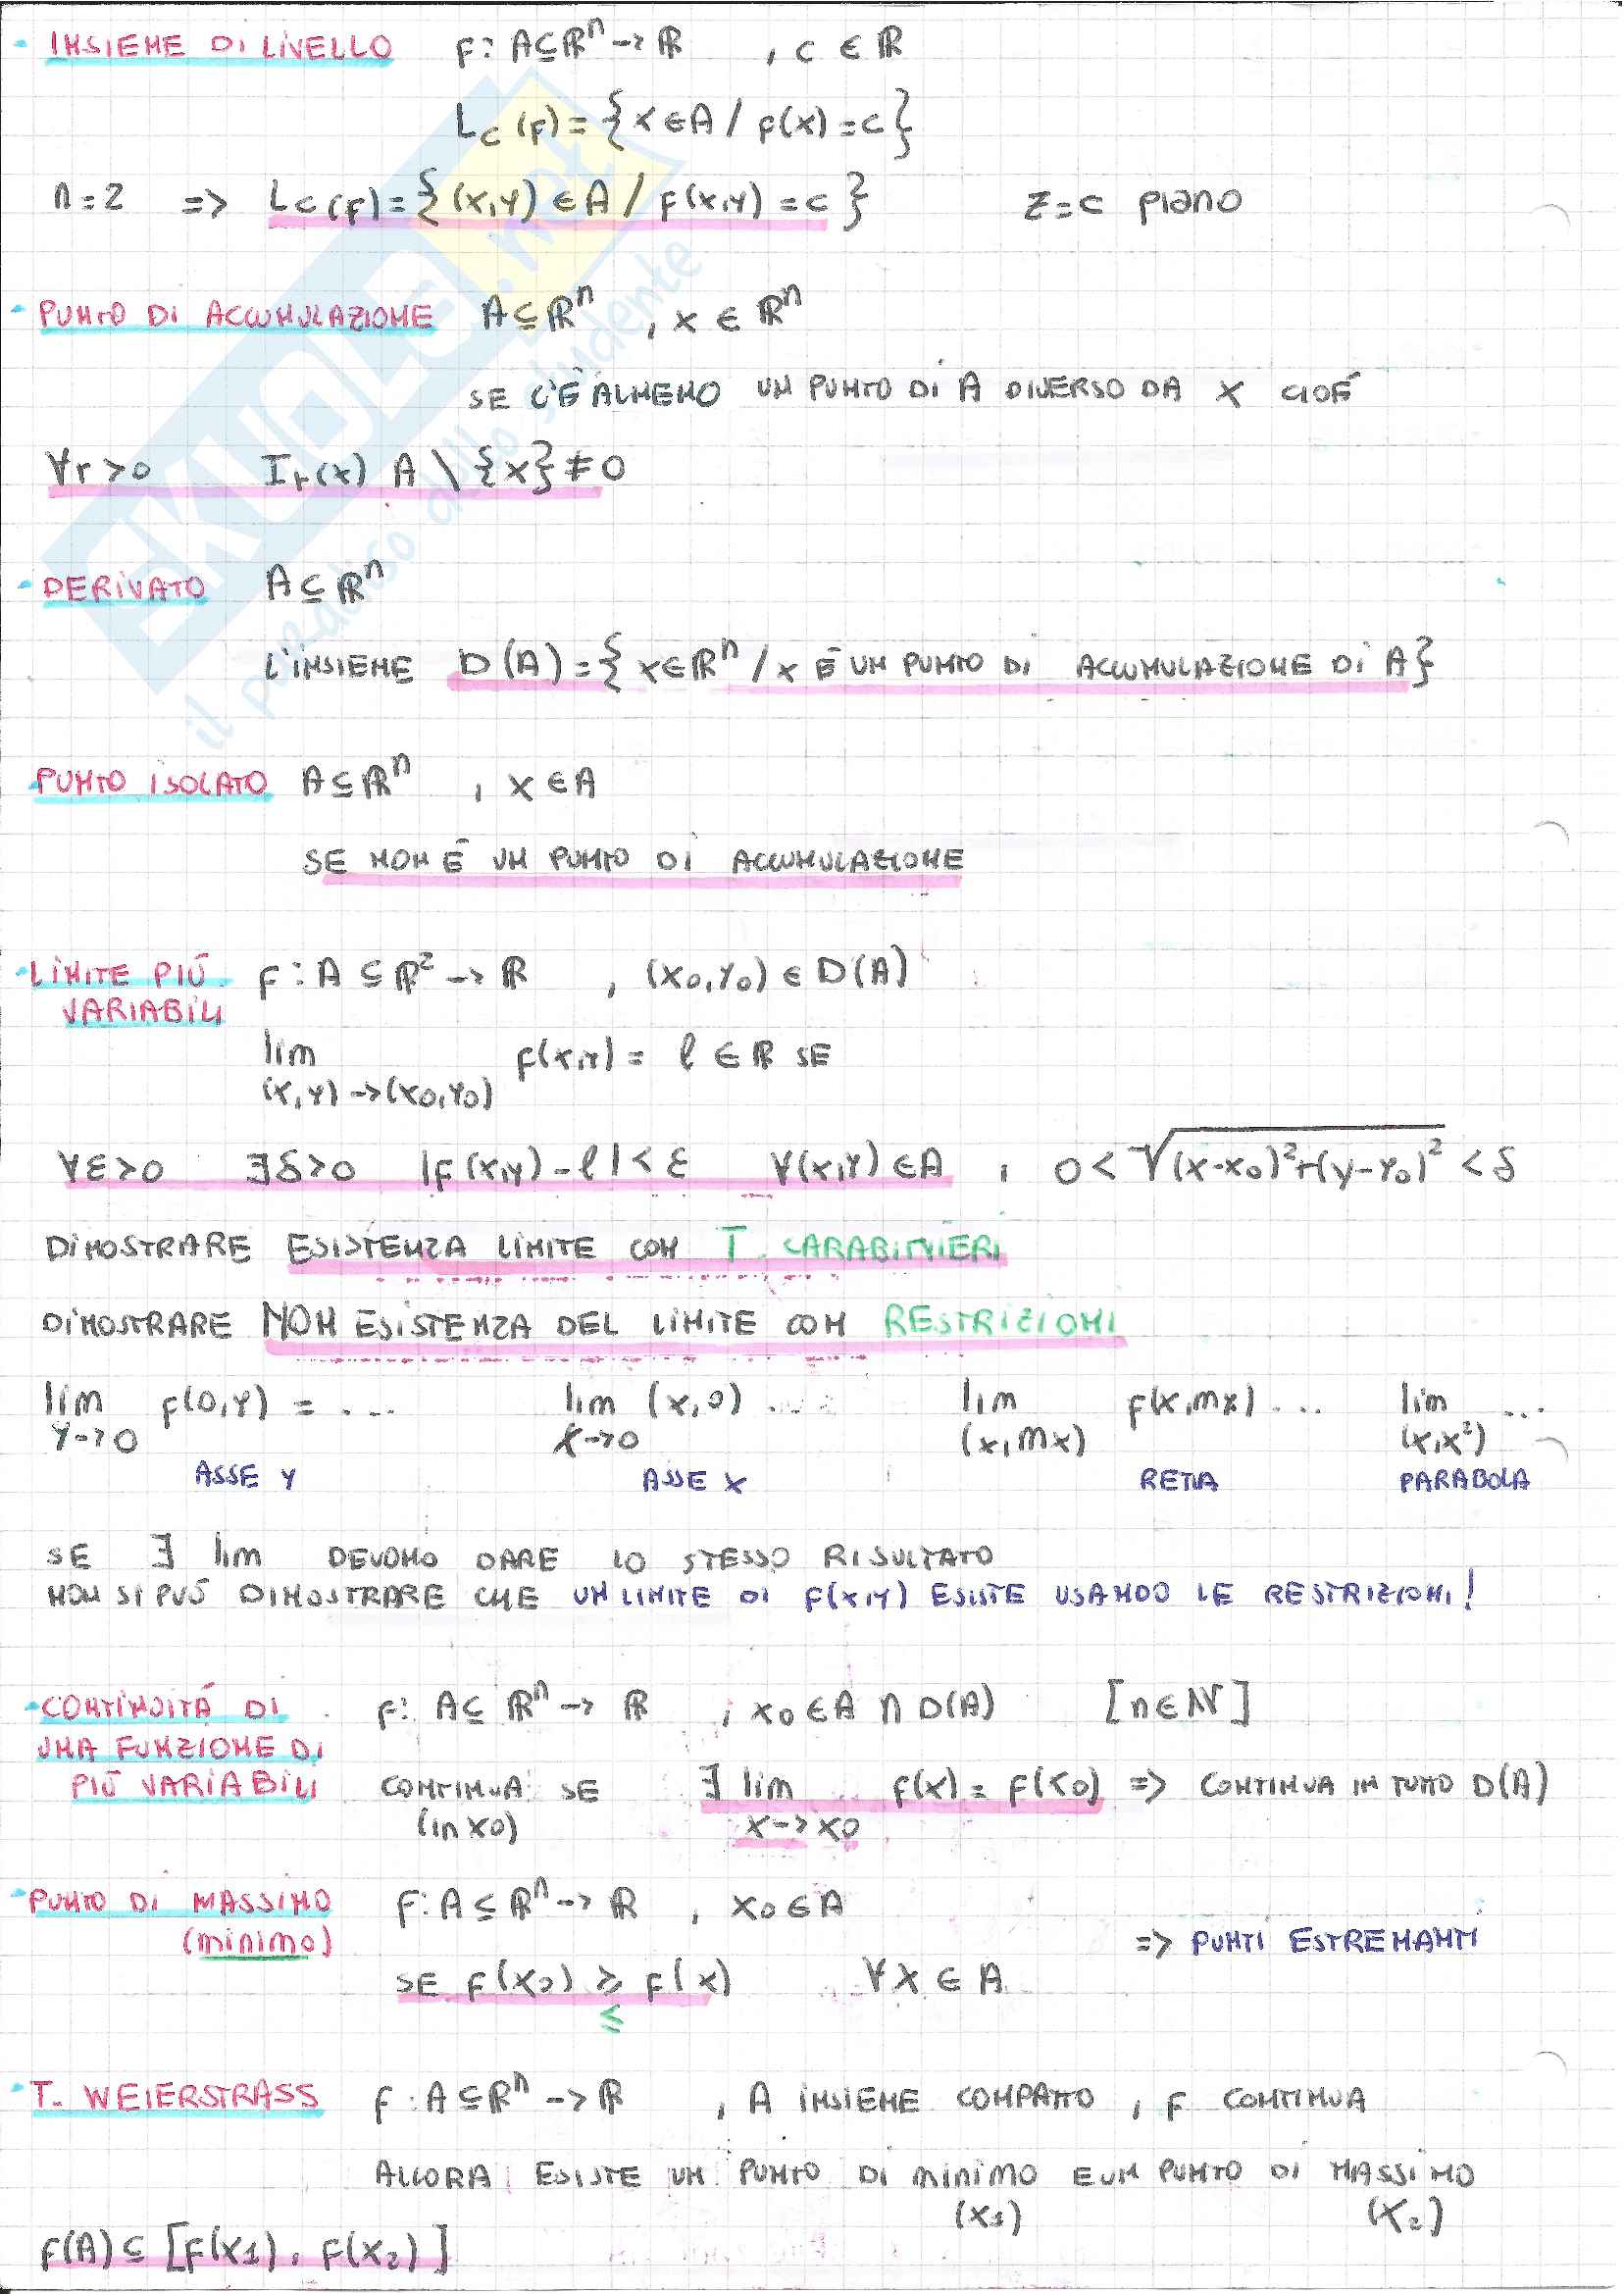 - INSIEME DI LIVELLO f: A⊆ℝⁿ → ℝ , c ∈ ℝ
Lc(f) = {x ∈ A / f(x) = c}
n = 2 => Lc(f) = {(x,y) ∈ A / f(x,y) = c} z = c piano
- PUNTO DI ACCUMULAZIONE A⊆ℝⁿ , x ∈ ℝⁿ
SE C'È ALMENO UN PUNTO DI A DIVERSO DA X CIOÈ
∀r>0 Ir(x) A \ {x} ≠ 0
- DERIVATO A⊆ℝⁿ
L'INSIEME D(A) = {x∈ℝⁿ / x È UN PUNTO DI ACCUMULAZIONE DI A}
- PUNTO ISOLATO A⊆ℝⁿ , x ∈ A
SE NON È UN PUNTO DI ACCUMULAZIONE
- LIMITE PIÙ f: A ⊆ ℝ² → ℝ , (x₀,y₀) ∈ D(A)
VARIABILI
lim f(x,y) = ℓ ∈ ℝ SE
(x,y) → (x₀,y₀)
∀ε>0 ∃δ>0 |f(x,y) - ℓ| < ε ∀(x,y) ∈ A , 0 < √(x-x₀)²+(y-y₀)² < δ
DIMOSTRARE ESISTENZA LIMITE CON T. CARABINIERI
DIMOSTRARE NON ESISTENZA DEL LIMITE CON RESTRIZIONI
lim f(0,y) = ... lim (x,0) ... lim f(x,mx) ... lim ...
y→0 x→0 (x,mx) (x,x²)
ASSE Y ASSE X RETTA PARABOLA
SE ∃ lim DEVONO DARE LO STESSO RISULTATO
NON SI PUÒ DIMOSTRARE CHE UN LIMITE DI f(x,y) ESISTE USANDO LE RESTRIZIONI!
- CONTINUITÀ DI f: A⊆ ℝⁿ → ℝ , x₀ ∈ A ∩ D(A) [n∈ℕ]
UNA FUNZIONE DI
PIÙ VARIABILI CONTINUA SE ∃ lim f(x) = f(x₀) => CONTINUA IN TUTTO D(A)
(in x₀) x→x₀
- PUNTO DI MASSIMO f: A⊆ℝⁿ → ℝ , x₀ ∈ A
(minimo) => PUNTI ESTREMANTI
SE f(x₀) ≥ f(x) ∀x ∈ A
≤
- T. WEIERSTRASS f: A⊆ℝⁿ → ℝ , A INSIEME COMPATTO , f CONTINUA
ALLORA ESISTE UN PUNTO DI MINIMO E UN PUNTO DI MASSIMO
(x₁) (x₂)
f(A) ⊆ [f(x₁), f(x₂)]
SKUOLA.net
il paradiso dello studente